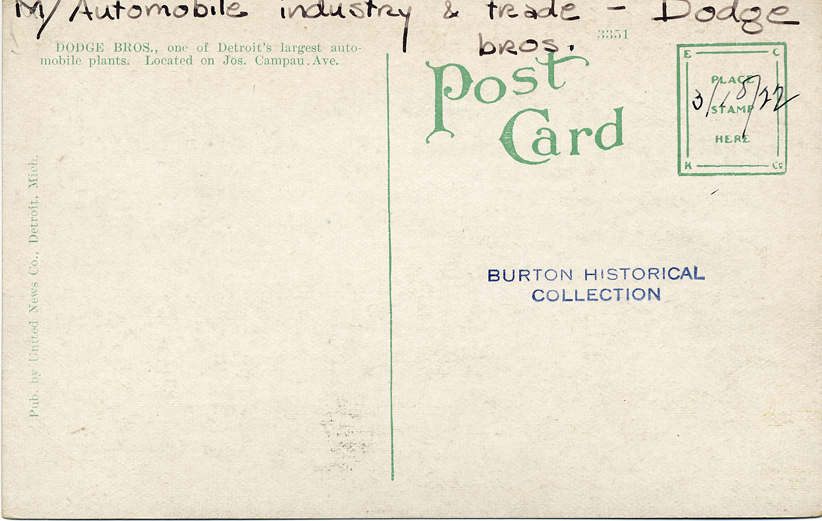 M/Automobile industry & trade - Dodge
bros.
3351
DODGE BROS., one of Detroit's largest auto-
mobile plants. Located on Jos. Campau Ave.
Post
Card
E C
PLACE
STAMP
HERE
K Co
3/18/22
BURTON HISTORICAL
COLLECTION
Pub. by United News Co., Detroit, Mich.